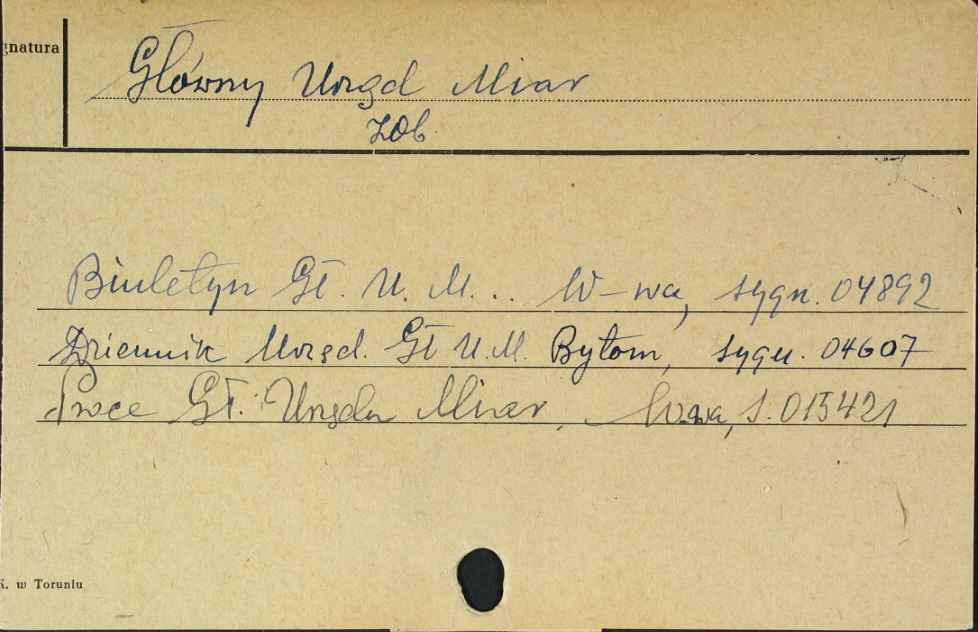 gnatura
Główny Urząd Miar
zob.
Biuletyn Gł. U. M. .. W-wa, sygn. 04892
Dziennik Urzęd. Gł U.M. Bytom, sygn. 04607
Prace Gł. Urzędu Miar, W-wa, s. 015421
K. w Toruniu